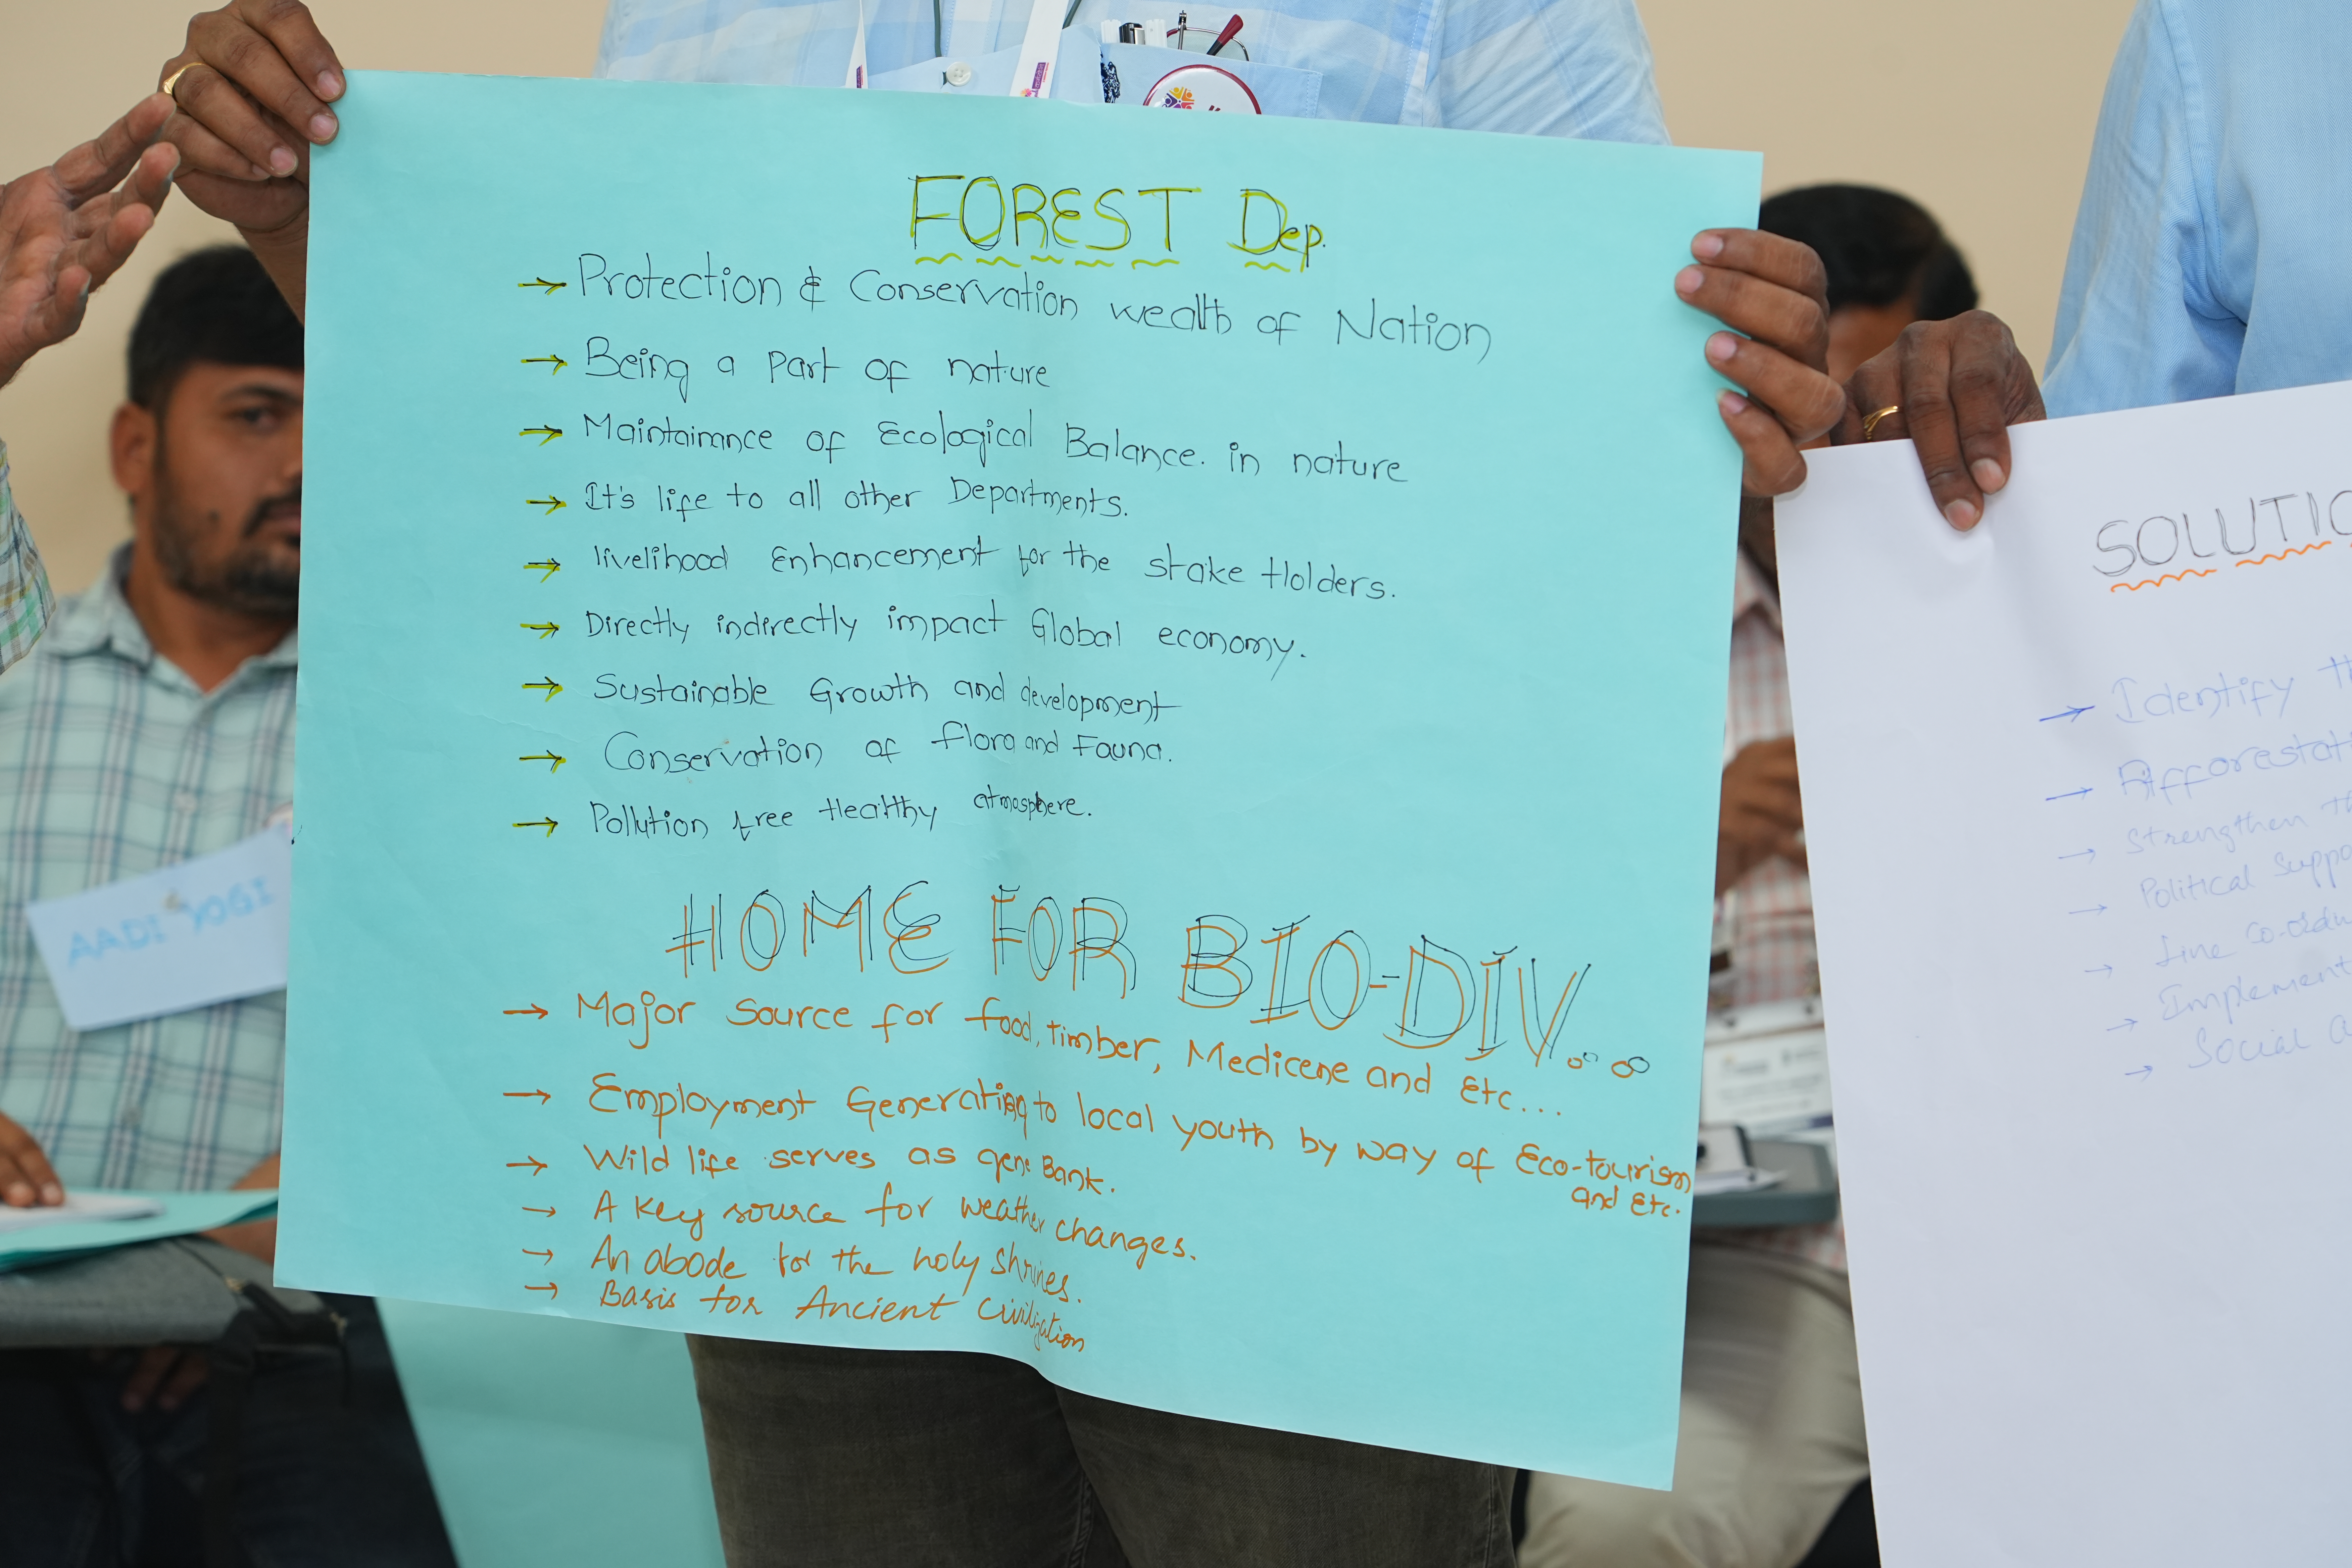 FOREST Dep.
→ Protection & Conservation wealth of Nation
→ Being a part of nature
→ Maintainance of Ecological Balance. in nature
→ It's life to all other Departments.
→ livelihood Enhancement for the stake Holders.
→ Directly indirectly impact Global economy.
→ Sustainable Growth and development
→ Conservation of flora and Fauna.
→ Pollution free Healthy atmosphere.
HOME FOR BIO-DIV...
→ Major Source for food, timber, Medicene and Etc...
→ Employment Generating to local youth by way of Eco-tourism
and Etc.
→ Wild life serves as gene Bank.
→ A key source for weather changes.
→ An abode for the holy shrines.
→ Basis for Ancient Civilization
AADI YOGI
SOLUTIO
→ Identify th
→ Afforestat
→ Strengthen th
→ Political suppo
→ Line Co-ordin
→ Implement
→ Social a